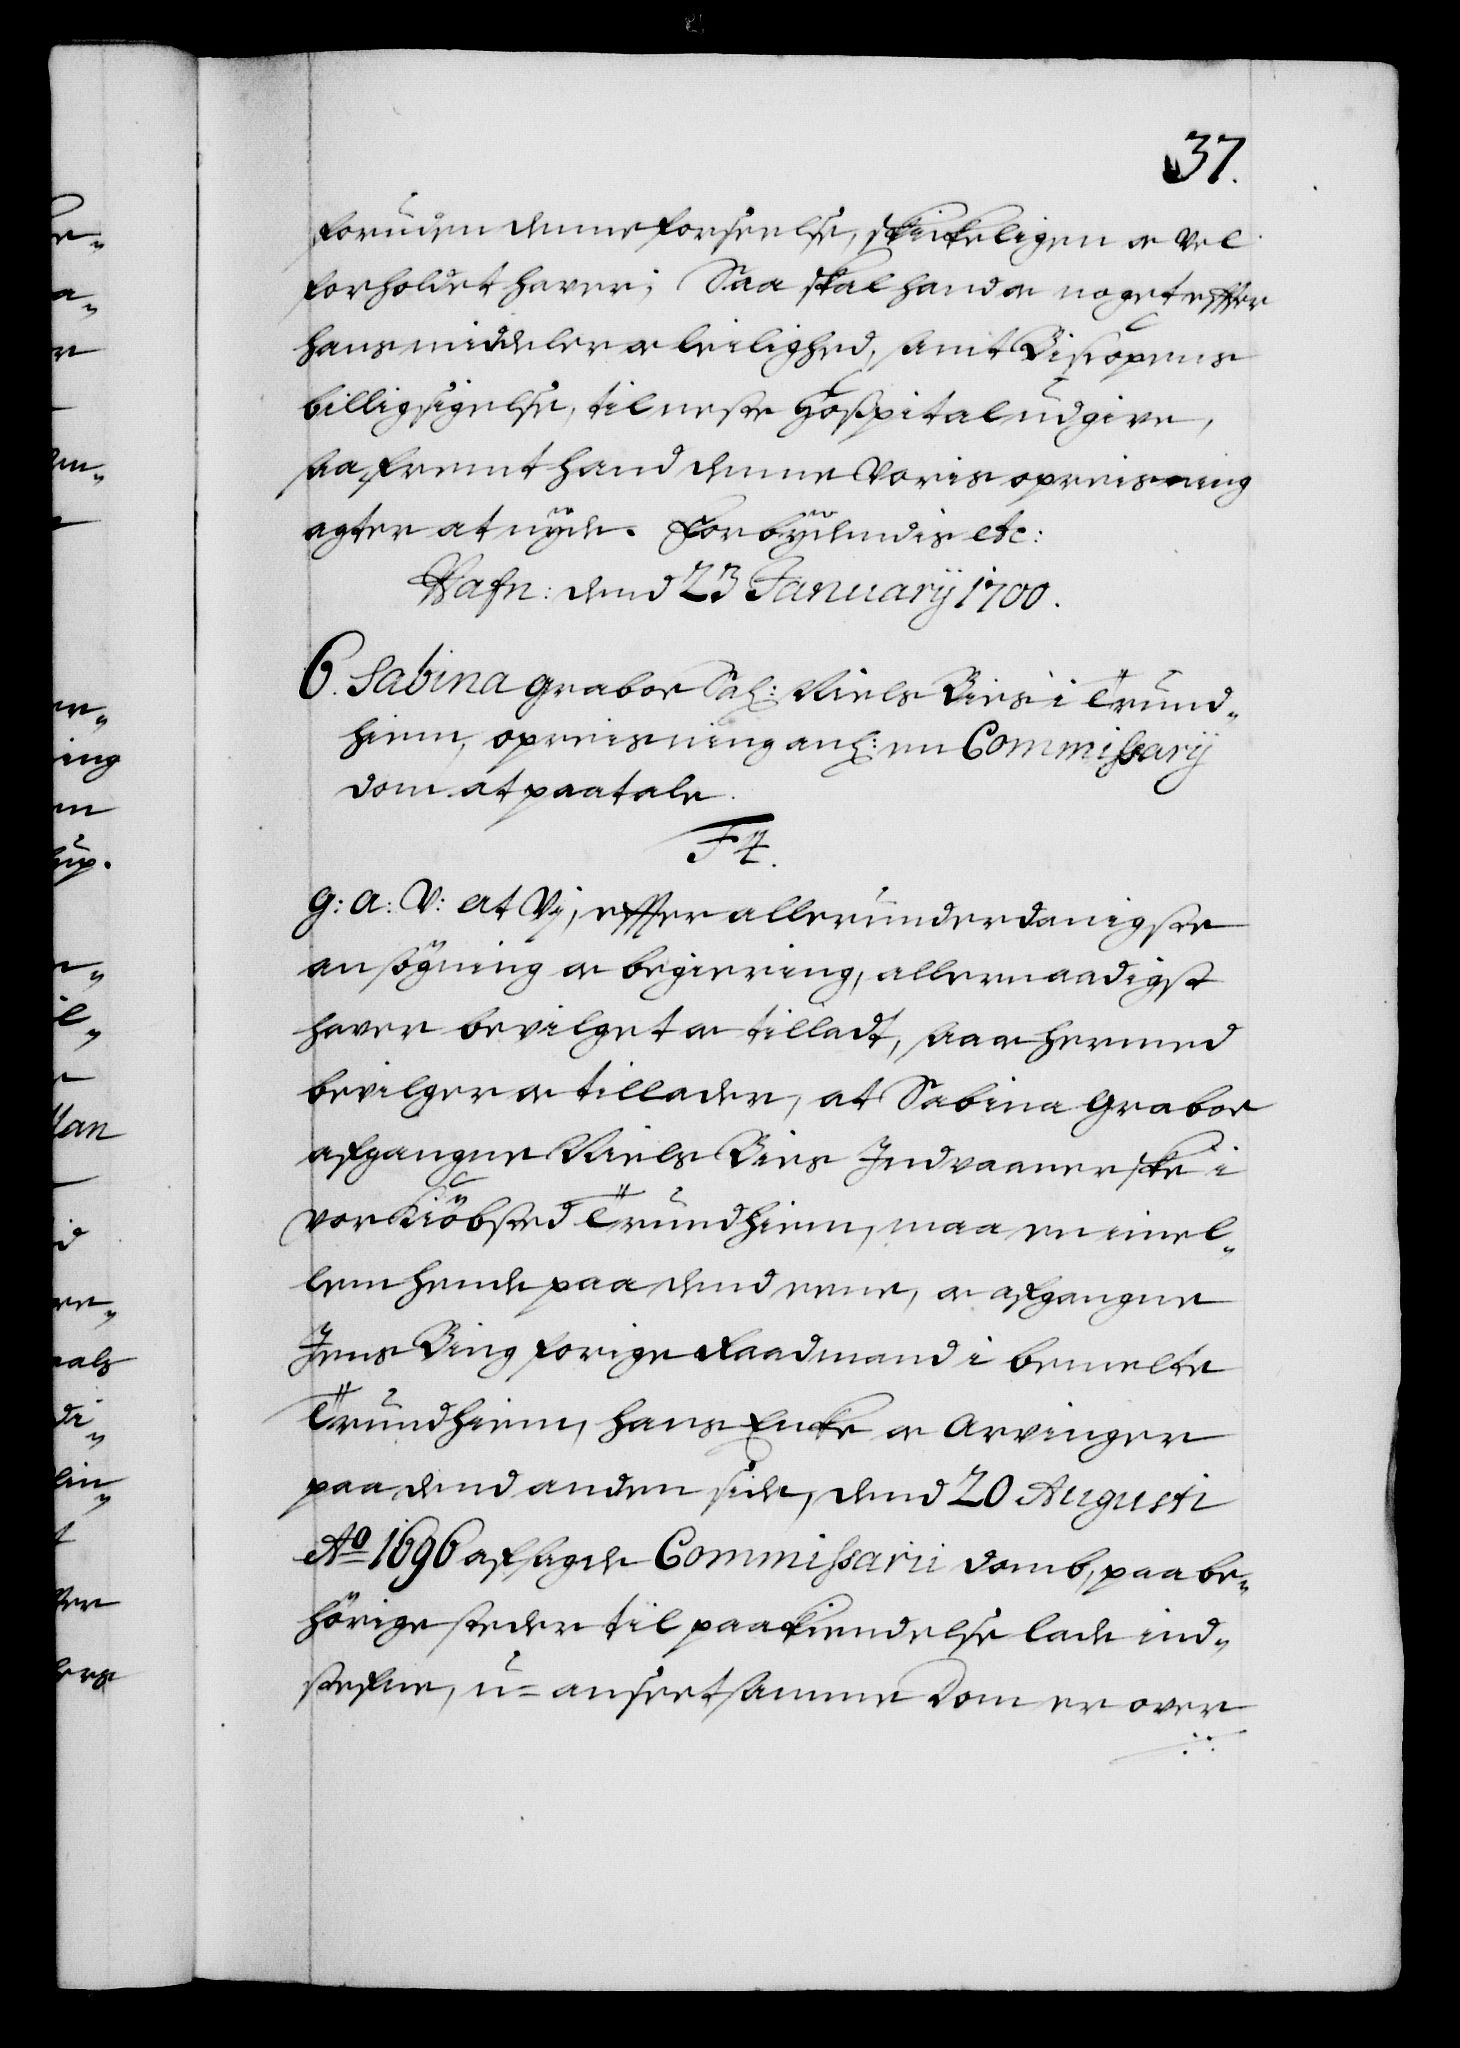 37.
foruden denne forseelse, skickeligen oc vel
forholdet haver; Saa skal hand oc noget effter
hans middeler oc leilighed, samt Bispens
billigsigelse, til neste Hospital udgive,
saa fremt hand denne Voris opreisning
agter at nyde. Forbydendis etc:
Hafn: dend 23 Januarij 1700.
6. Sabina Graboe Sal: Niels Bies i Trund„
hiem, opreisning anl: en Commissarij
dom at paatale.
F 4.
G: A: V: at Vj, effter allerunderdanigste
ansögning oc begiering, allernaadigst
haver bevilget oc tilladt, saa oc hermed
bevilger oc tillader, at Sabina Graboe
afgangne Niels Bies Indvaanerske i
vor Kiöbsted Trundhiem, maa en imel„
lem hende paa dend eene, oc afgangne
Jens Bing forige Raadmand i bemelte
Trundhiem, hans Encke oc Arvinger
paa dend anden side, dend 20 Augusti
Ao 1696 afsagde Commissarii domb, paa be„
hörige steder til paakiendelse lade ind„
stefne, u=anseet samme Dom er over